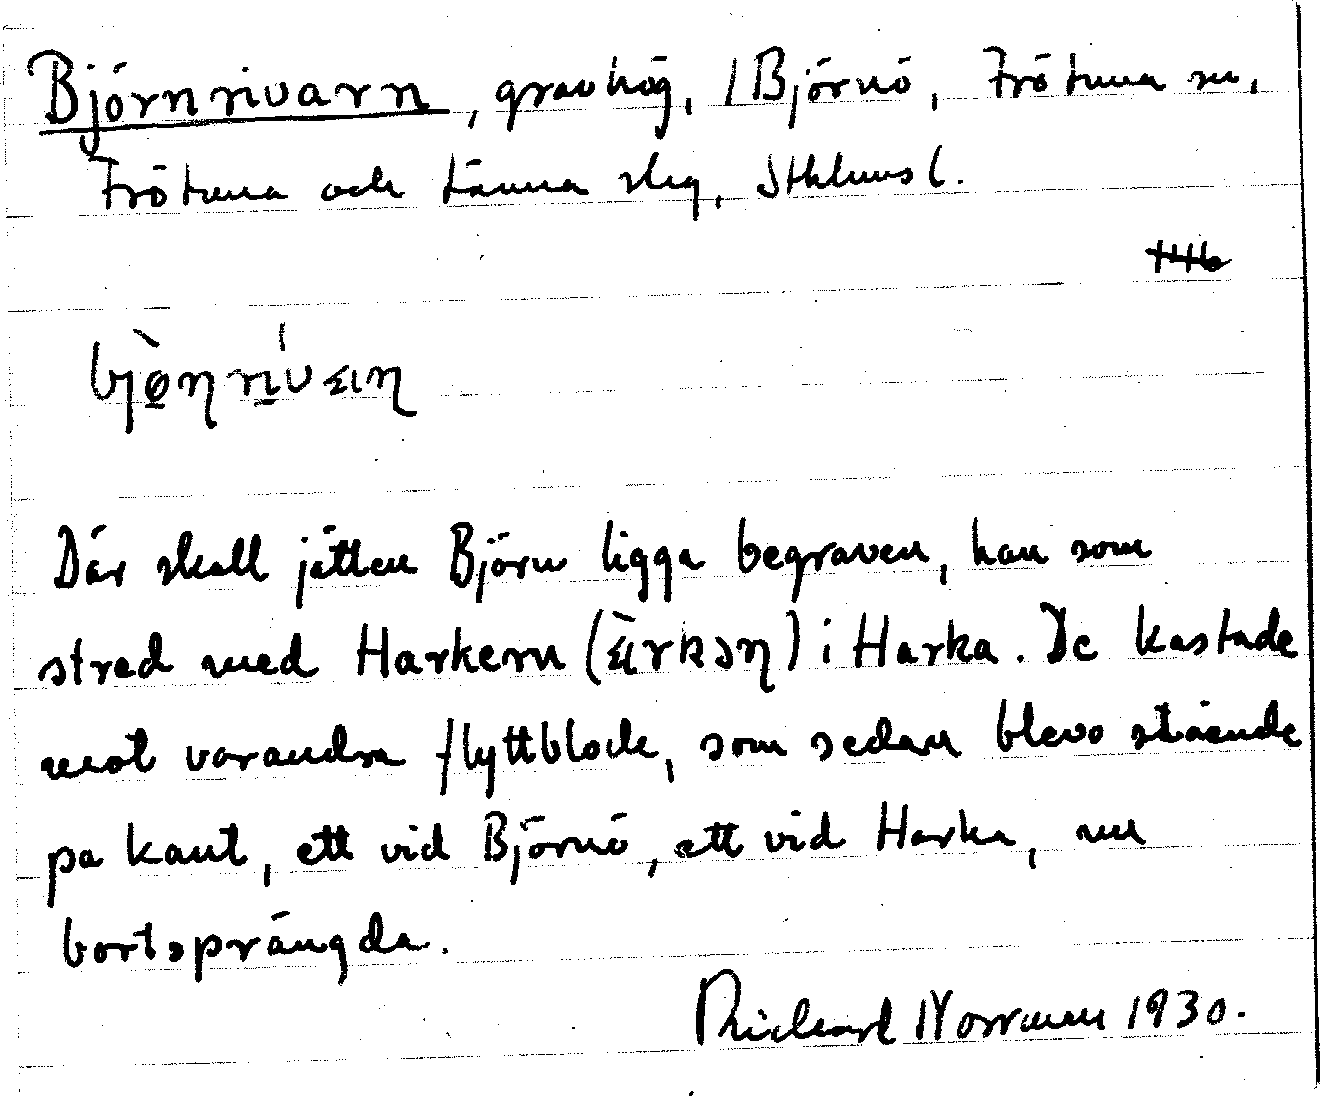 Björnrivarn, gravhög, /Björnö, Frötuna sn,
Frötuna och Länna slg, Sthlms l.
bjò̱ŋri̱vaɹŋ
Där skall jätten Björn ligga begraven, han som
stred med Harkern (àrkəɳ) i Harka. De kastade
mot varandra flyttblock, som sedan blevo stående
på kant, ett vid Björnö, ett vid Harka, nu
bortsprängda.
Richard Norrman 1930.